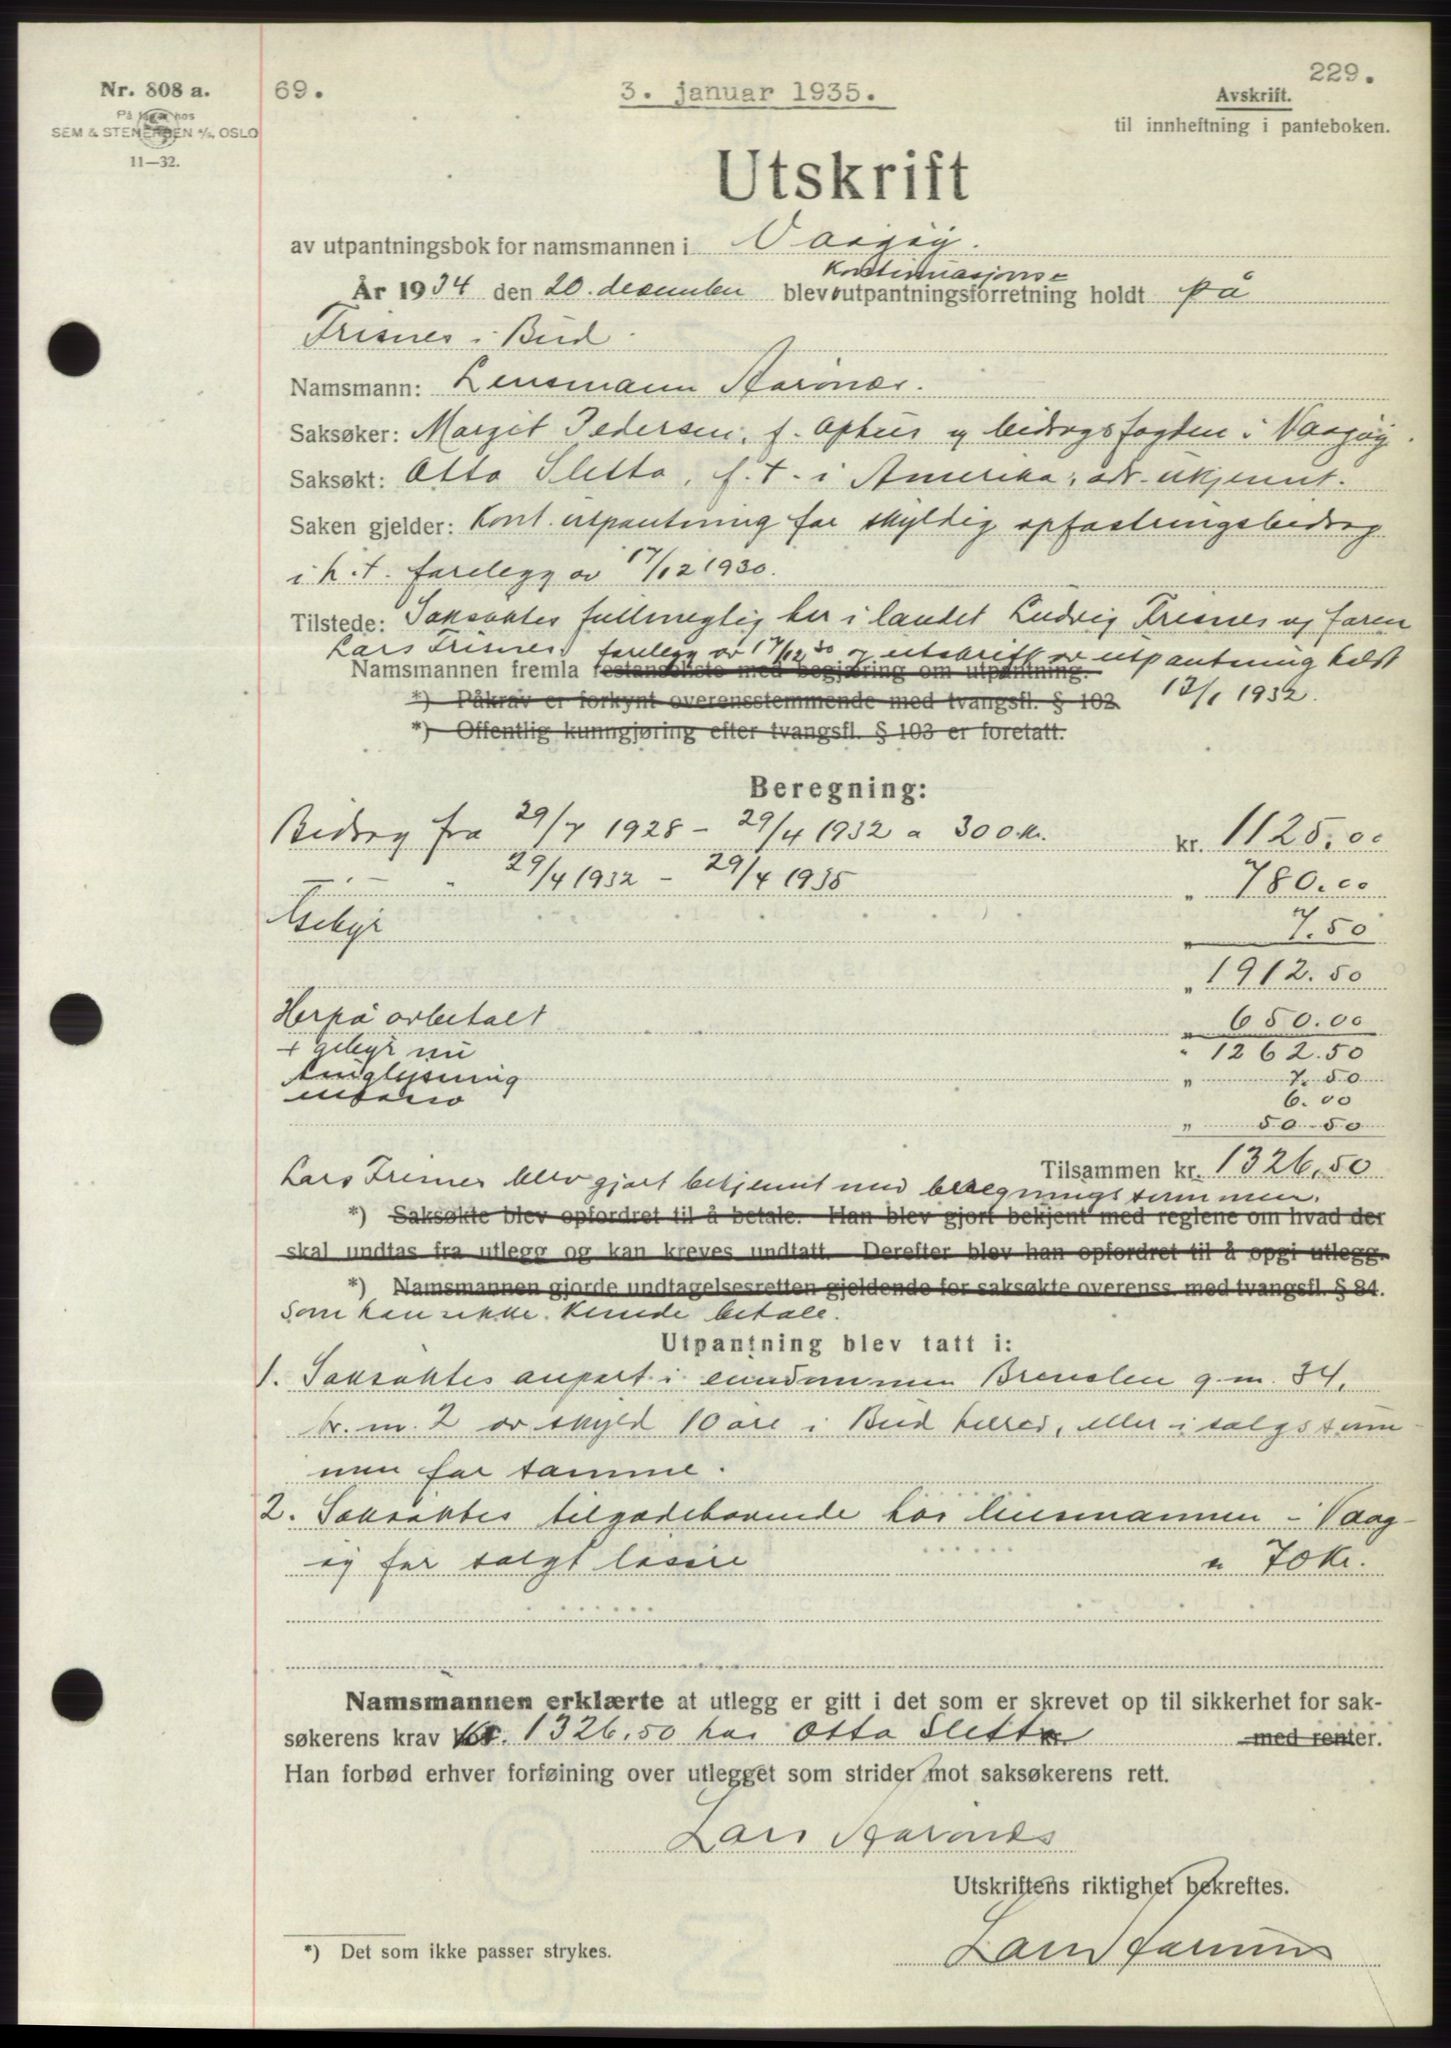 Nr. 808 a.
På lager hos
SEM & STENERSEN A/S, OSLO
11—32.
69.
3. januar 1935.
229.
Avskrift.
til innheftning i panteboken.
Utskrift
av utpantningsbok for namsmannen i Vaagøy.
Kontinuasjons-
År 1934 den 20. desember blev utpantningsforretning holdt på
Frisnes i Bud.
Namsmann: Lensmann Aarønes.
Saksøker: Margit Pedersen, f. Ophus og bidragsfogden i Vaagøy.
Saksøkt: Otto Sletta, f. t. i Amerika, adr. ukjennt.
Saken gjelder: Kont. utpantning for skyldig opfostringsbidrag
i h. t. forelegg av 17/12 1930.
Tilstede: Saksøktes fullmegtig her i landet Ludvig Frisnes og faren
Lars Frisnes, forelegg av 17/12 30 og utskrift av utpantning holdt
Namsmannen fremla restanseliste med begjæring om utpantning.
*) Påkrav er forkynt overensstemmende med tvangsfl. § 102. 12/1 1932.
*) Offentlig kunngjøring efter tvangsfl. § 103 er foretatt.
Beregning:
Bidrag fra 29/7 1928 - 29/4 1932 a 300 kr. kr. 1125.00
— . — " 29/4 1932 - 29/4 1935 " 780.00
Gebyr " 7.50
" 1912.50
Herpå avbetalt " 650.00
+ gebyr nu " 1262.50
tinglysning " 7.50
6.00
" 50.50
Tilsammen kr. 1326.50
Lars Frisnes blev gjort bekjennt med beregningssummen.
*) Saksøkte blev opfordret til å betale. Han blev gjort bekjent med reglene om hvad der
skal undtas fra utlegg og kan kreves undtatt. Derefter blev han opfordret til å opgi utlegg.
*) Namsmannen gjorde undtagelsesretten gjeldende for saksøkte overenss. med tvangsfl. § 84.
Som han ikke kunde betale.
Utpantning blev tatt i:
1. Saksøktes anpart i eiendommen Brenslen g. nr. 34,
br. nr. 2 av skyld 10 øre i Bud herred, eller i salgssum-
men for samme.
2. Saksøktes tilgodehavende hos lensmannen i Vaag-
øy for solgt løsøre " 70 kr.
Namsmannen erklærte at utlegg er gitt i det som er skrevet op til sikkerhet for sak-
søkerens krav kr. 1326,50 hos Otto Sletta med renter.
Han forbød erhver forføining over utlegget som strider mot saksøkerens rett.
Lars Aarønes
Utskriftens riktighet bekreftes.
Lars Aarønes
*) Det som ikke passer strykes.